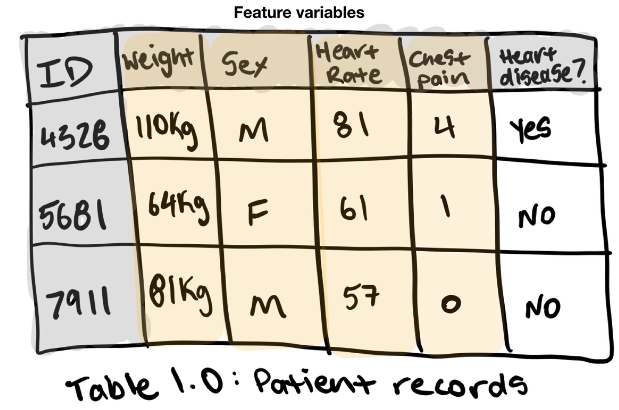 Feature variables
ID Weight Sex Heart Rate Chest pain Heart disease?
4328 110Kg M 81 4 Yes
5681 64Kg F 61 1 NO
7911 81Kg M 57 0 NO
Table 1.0: Patient records